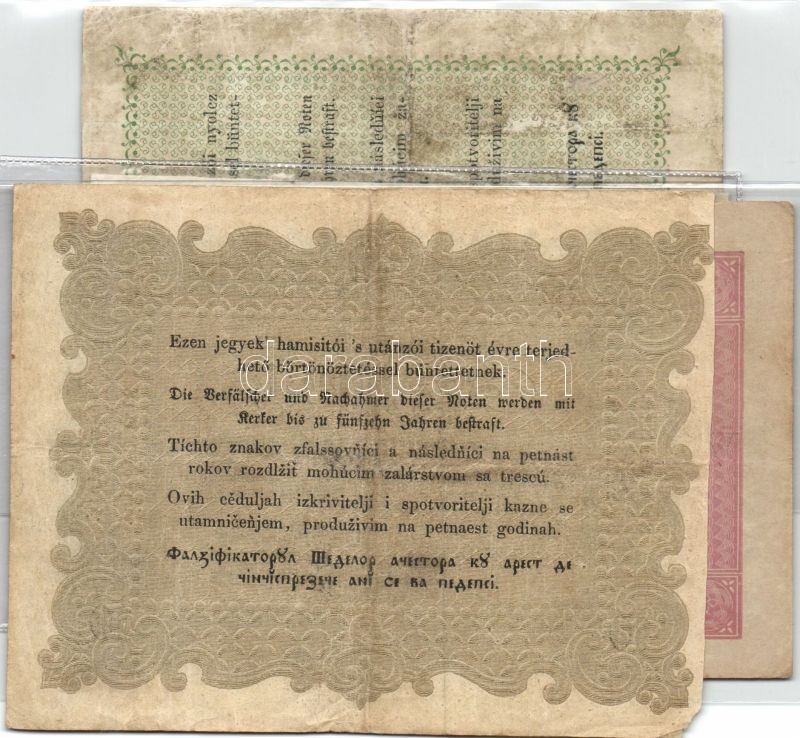 zói nyolcz
sel büntet-
dieser Noten
bestraft.
následňíci
spotvoritelji
produživim na
Ezen jegyek hamisitói 's utánzói tizenöt évre terjed-
hető börtönöztetéssel büntettetnek.
Die Verfälscher und Nachahmer dieser Noten werden mit
Kerker bis zu fünfzehn Jahren bestraft.
Tíchto znakov zfalssovňíci a následňíci na petnást
rokov rozdlžiť mohúcim zalárstvom sa trescú.
Ovih cĕduljah izkrivitelji i spotvoritelji kazne se
utamničenjem, produživim na petnaest godinah.
Фалзіфікаторꙋл Шеделор ачестора кꙋ арест де
чінчіспрезече ані се ва педепсі.
darabanth